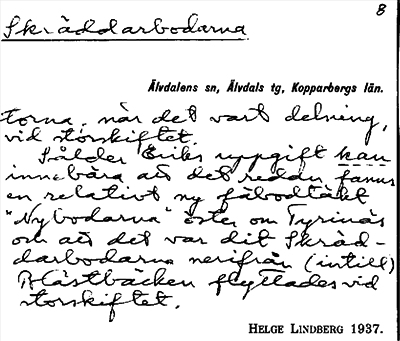 8
Skräddarbodarna
Älvdalens sn, Älvdals tg, Kopparbergs län.
torna, när det vart delning,
vid storskiftet.
Sålder Eriks uppgift kan
innebära att det redan fanns
en relativt ny fäbodtäkt
"Nybodarna" öster om Tyrinäs
och att det var dit Skräd-
darbodarna nerifrån (intill)
Blästbäcken flyttades vid
storskiftet.
HELGE LINDBERG 1937.